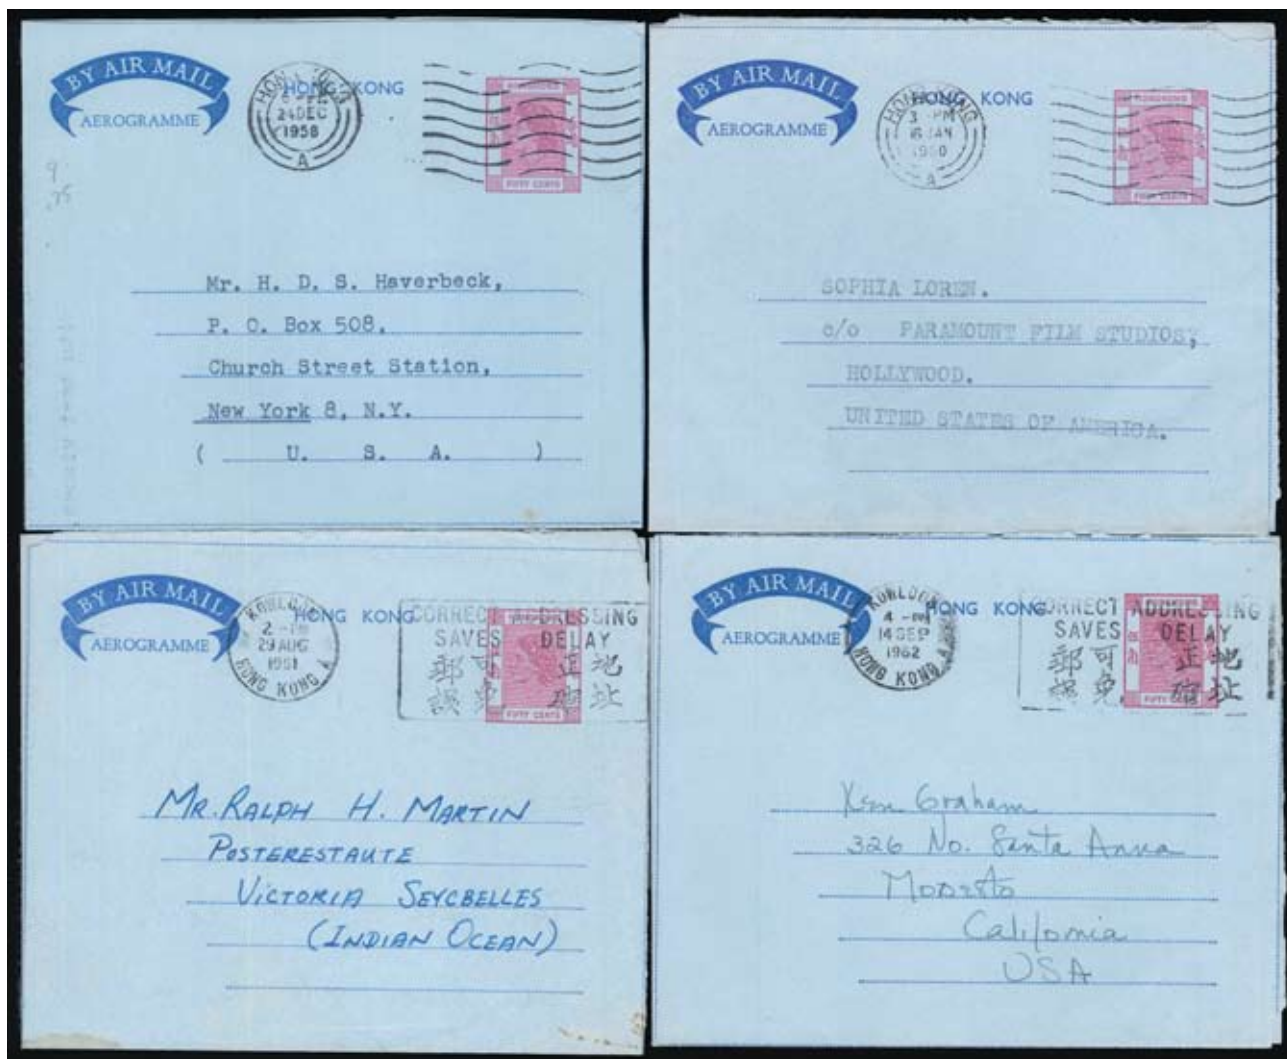 BY AIR MAIL
AEROGRAMME
HONG KONG
24 DEC
1958
A
FIFTY CENTS
Mr. H. D. S. Haverbeck,
P. O. Box 508.
Church Street Station,
New York 8, N.Y.
( U. S. A. )
BY AIR MAIL
AEROGRAMME
HONG KONG
HONG KONG
3 PM
16 JAN
1960
A
HONG KONG
FIFTY CENTS
SOPHIA LOREN.
c/o PARAMOUNT FILM STUDIOS,
HOLLYWOOD.
UNITED STATES OF AMERICA.
BY AIR MAIL
AEROGRAMME
HONG KONG
KOWLOON
2 - PM
29 AUG
1961
HONG KONG
CORRECT ADDRESSING
SAVES DELAY
郵可 正地
誤免 確址
FIFTY CENTS
MR. RALPH H. MARTIN
POSTERESTAUTE
VICTORIA SEYCBELLES
(INDIAN OCEAN)
BY AIR MAIL
AEROGRAMME
HONG KONG
KOWLOON
4 - PM
14 SEP
1962
HONG KONG
CORRECT ADDRESSING
SAVES DELAY
郵可 正地
誤免 確址
FIFTY CENTS
Ken Graham
326 No. Santa Anna
Modesto
California
USA